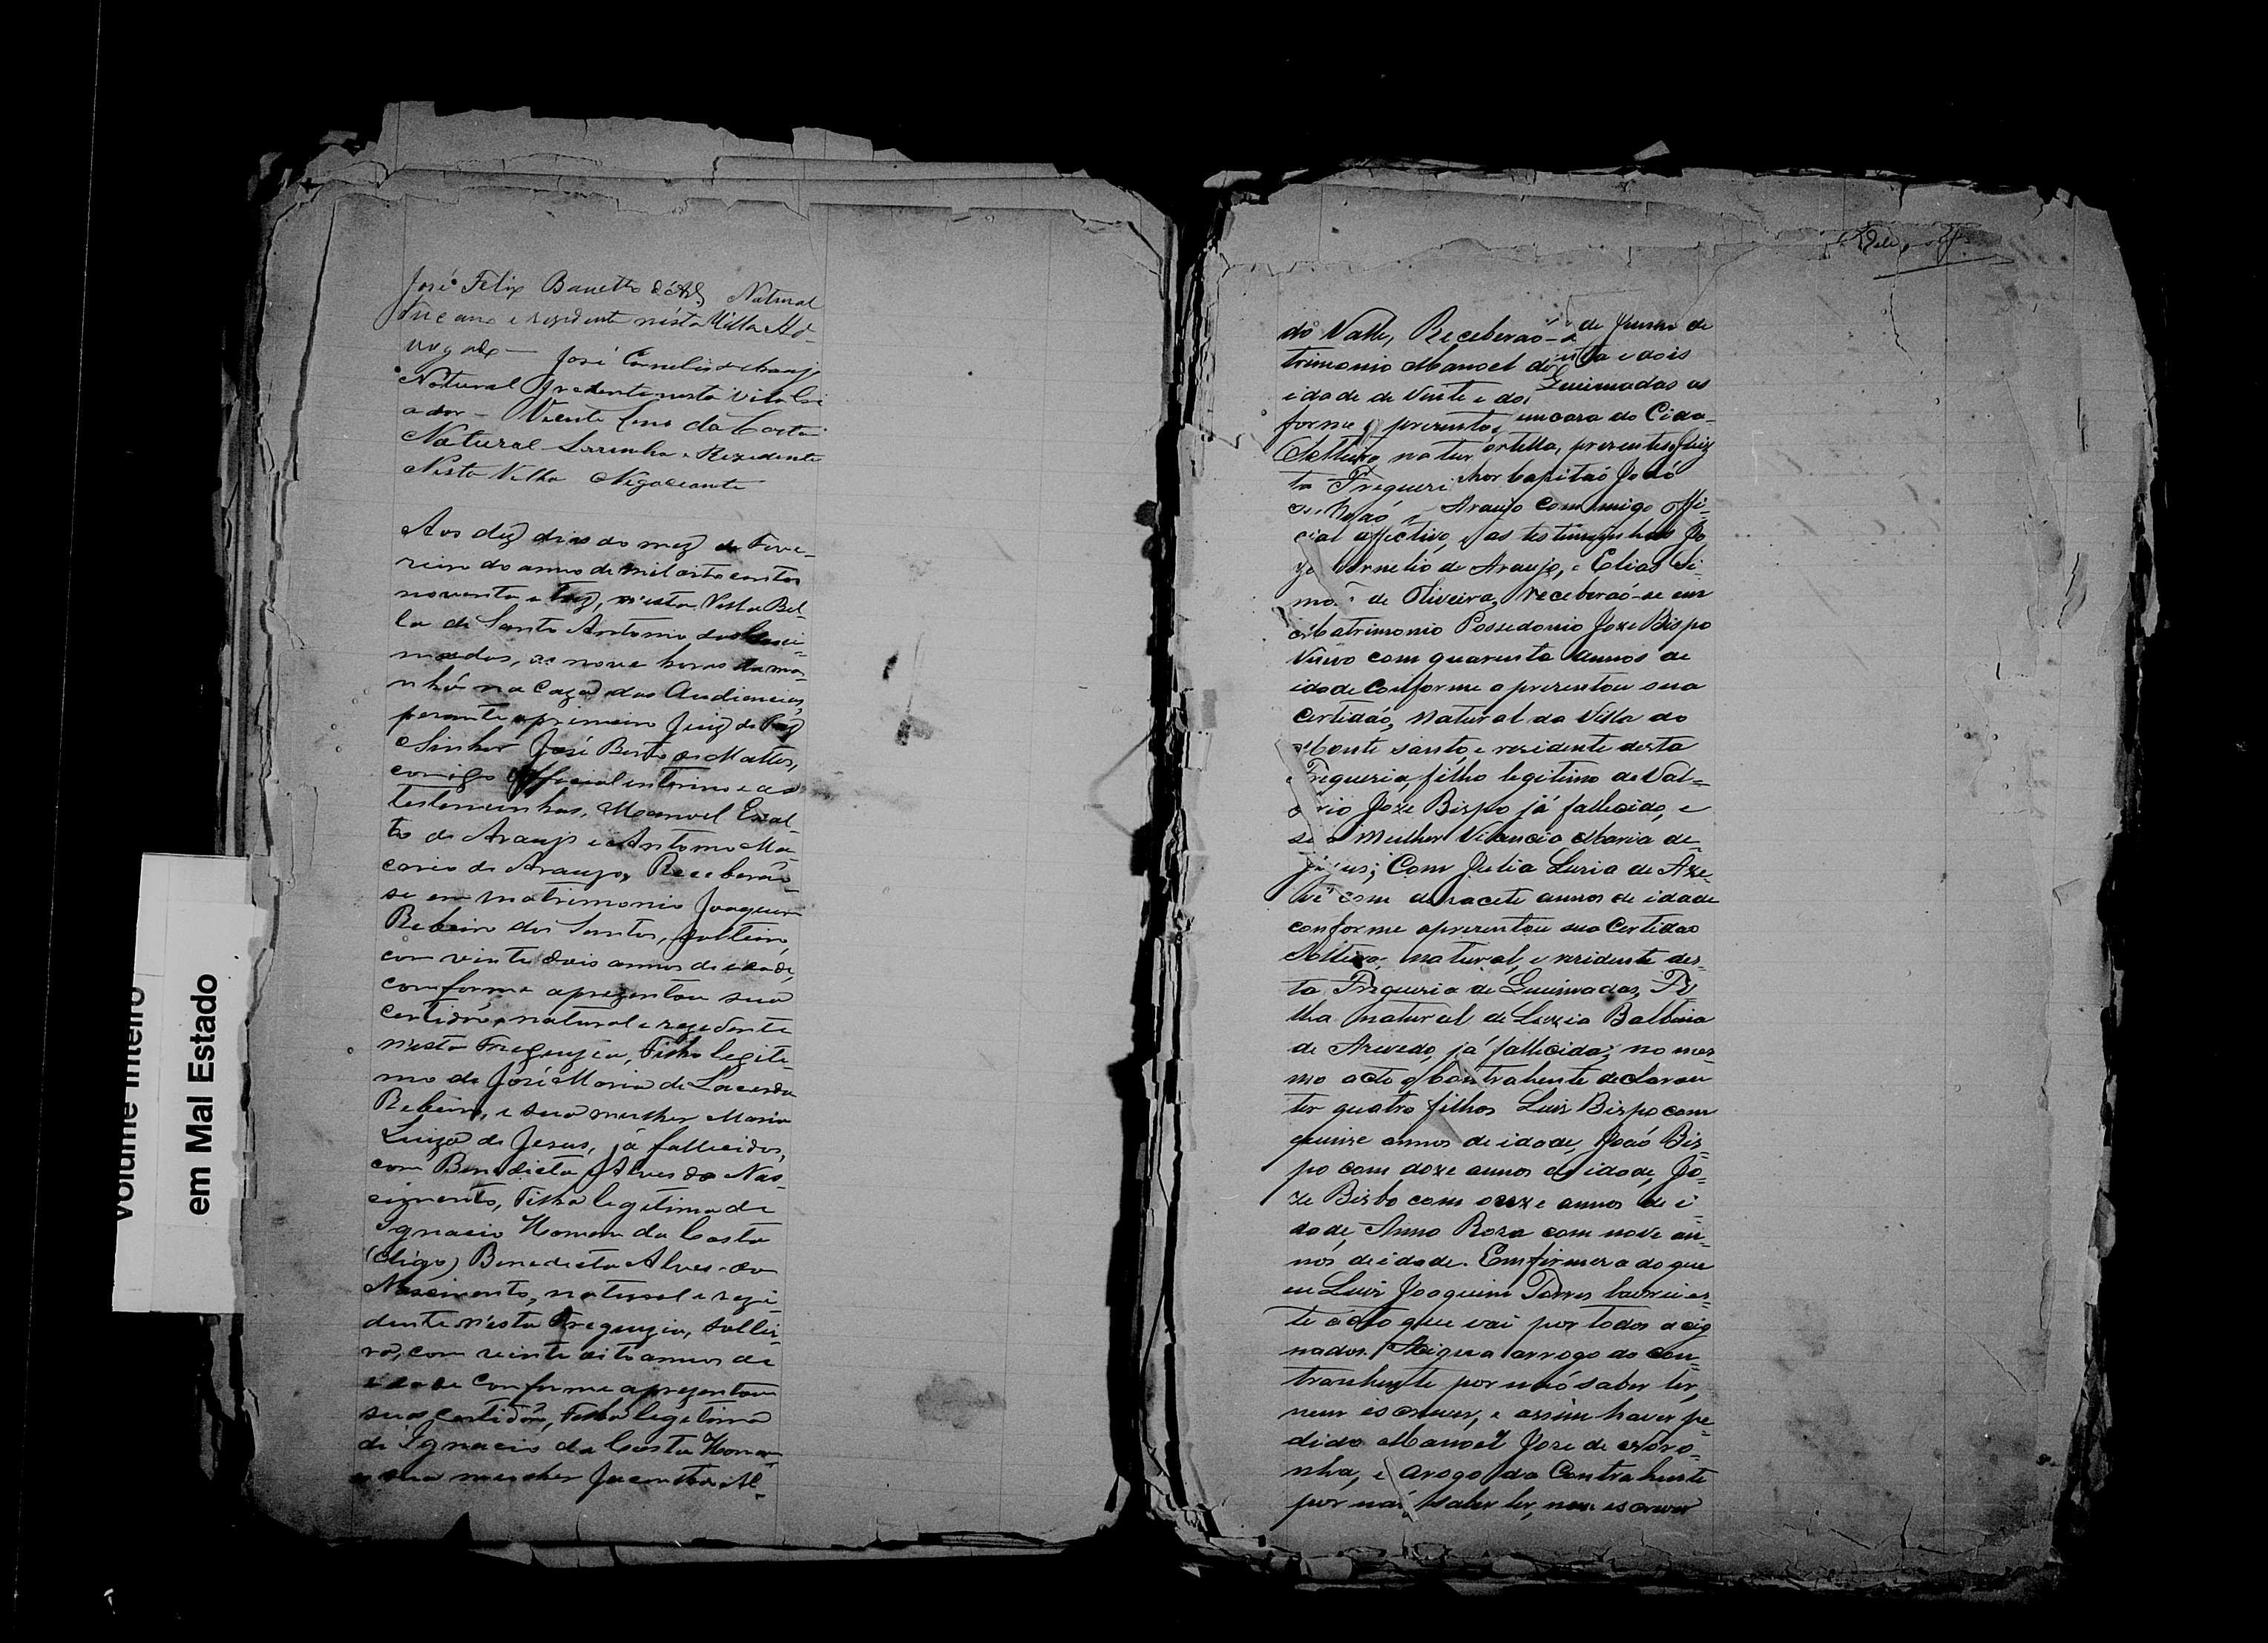 Volume Inteiro
em Mal Estado
José Felix Barretto Natural
Tucano e rezidente nésta Villa Ad-
vogado — José Cornelio de Araujo
Natural rezidente nesta Villa
ador — Vicente da Costa
Natural Serrinha e Rezidente
Nesta Villa Negociante
Aos dez dias do mez de Feve-
reiro do anno de mil oito centos
noventa e trez, n'esta Villa Bel-
la de Santo Antonio das Quei-
madas, as nove horas da ma-
nhã na Caza das Audiencias,
perante o primeiro Juiz de Paz
Sinhor José Bento de Mattos,
comigo Official interino e as
testemunhas, Manoel Exal-
to de Araujo e Antonio Ma-
cario de Araujo, Receberão-
se em matrimonio Joaquim
Ribeiro dos Santos, solteiro,
com vinte dois annos de idade,
comforme aprezentou sua
certidão, natural e rezedente
n'esta Freguezia, Filho legiti-
mo de José Maria de Lacerda
Ribeiro, e sua mulher Maria
Luiza de Jesus, já fallecidos,
com Benedicta Alves do Nas-
cimento, Filha legitima de
Ignacio Homem da Costa
(digo) Benedicta Alves do
Nascimento, natural e rezi-
dente n'esta Freguezia, soltei-
ra, com vinte oito annos de
idade comforme aprezentou
sua certidão, Filha legitima
de Ignacio da Costa Homem
e sua mulher Jacintha Al-
do Valle, Receberaó-
trimonio Manoel
idade de Vinte e dois
forme aprezentou
Solteiro natur
ta Fregueri
de Junho de
ta e dois
Queimadas as
em cara do Cida-
ortella, prezentes Juiz
nhor Capitaó Joaó
Araujo Commigo offi-
cial affectivo, e as testimunhas Jo
ze Cornelio de Araujo, e Elias Si-
mó de Oliveira, receberaó-se em
Matrimonio Possedonio Joze Bispo
Viuvo com quarenta annos de
idade Conforme aprezentou sua
Certidaó, Natural da Villa do
Monte santo, e rezidente desta
Fregueria, filho legitimo de Val-
erio Joze Bispo já fallecido, e
sua Mulher Venancia Maria de
Jezus; Com Julia Luzia de Aze-
com dezacete annos de idade
conforme aprezentou sua Certidao
Solteira, natural, e rezidente des-
ta Fregueria de Queimadas, Fi
lha natural de Luzia Balbina
de Azevedo, já fallicida; no mes-
mo acto o Contrahente declarou
ter quatro filhos Luis Bispo com
quinze annos de idade, Joaó Bis-
po com doze annos de idade, Jo-
ze Bisbo com onze annos de i-
dade, Anna Roza com nove an-
nos de idade. Em firmeza do que
eu Luis Joaquim Torres lavrei es-
te acto que vai por todos acig
nados. Acigna arrogo do Con-
trahente por naó saber ler,
nem escrever, e assim haver pe-
dido Manoel Joze de Noro-
nha, e arogo da Contrahente
por naó saber ler, nem escrever